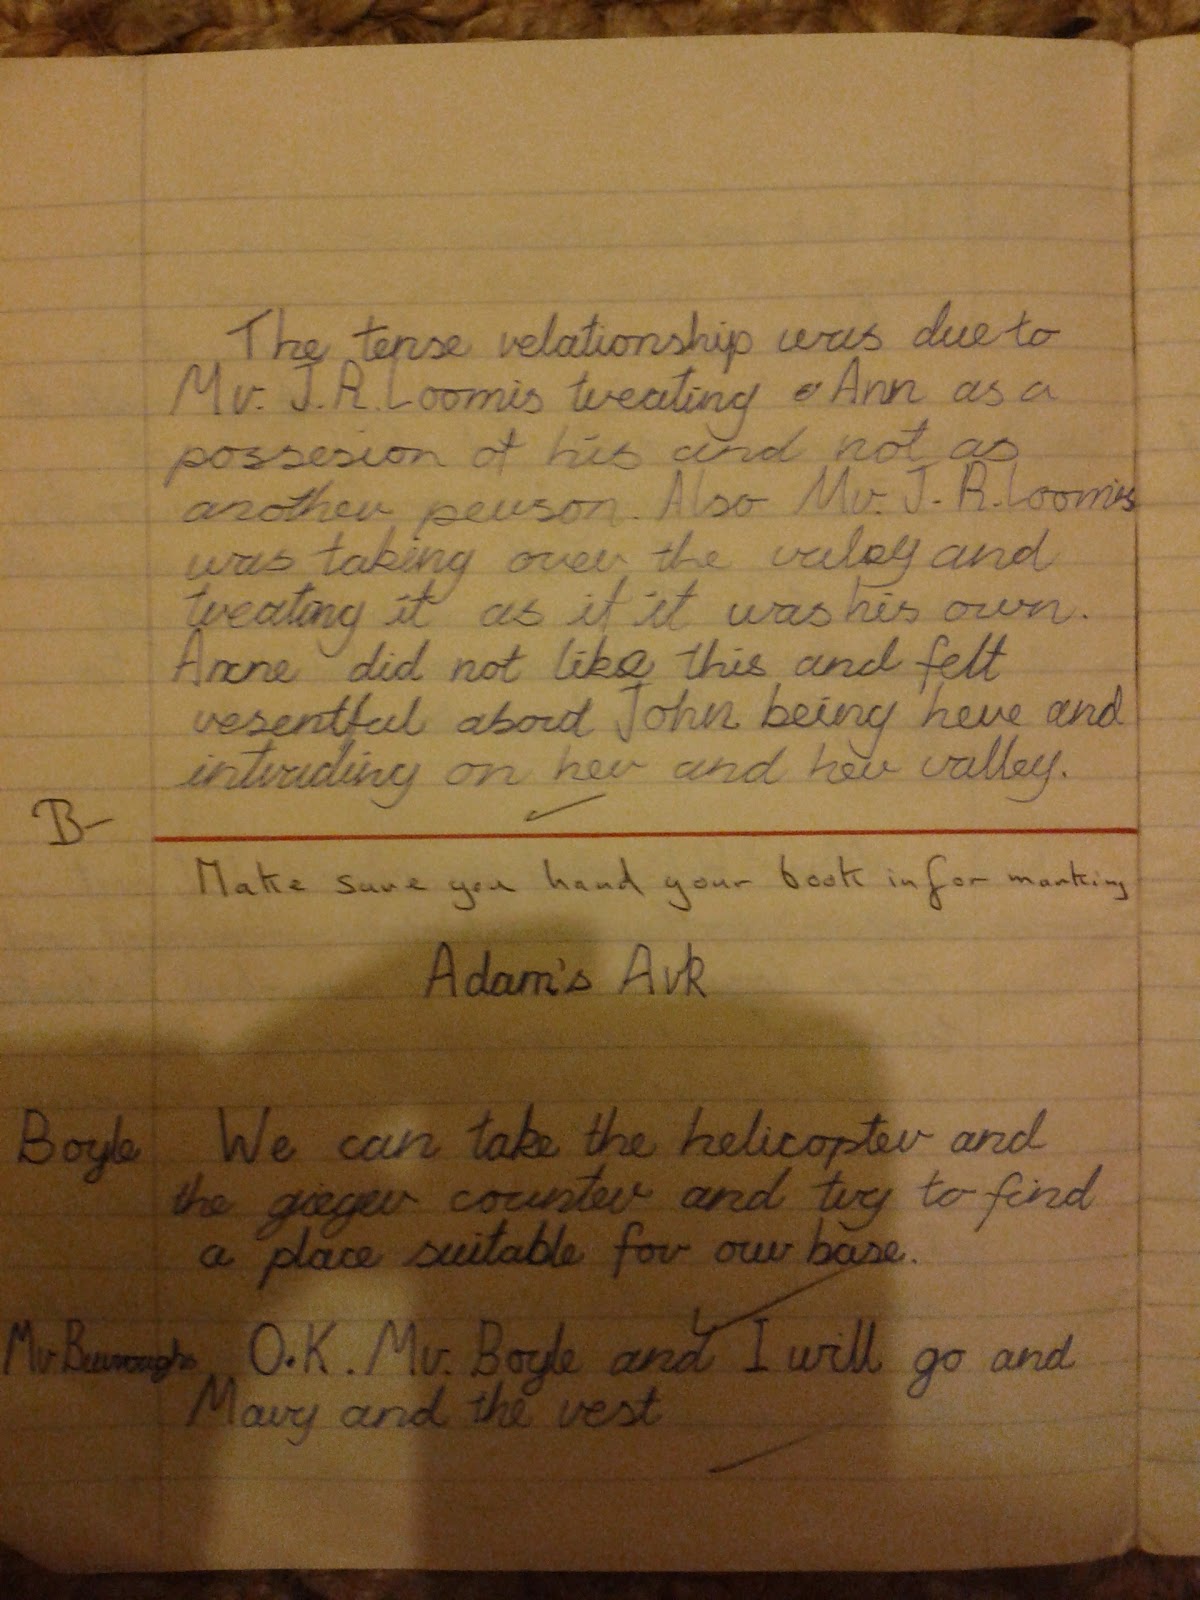 The tense relationship was due to
Mr. J.R. Loomis treating Ann as a
possesion of his and not as
another person. Also Mr. J.R. Loomis
was taking over the valey and
treating it as if it was his own.
Anne did not like this and felt
resentful abord John being here and
intruding on her and her valley.
B-
Make sure you hand your book in for marking
Adam's Ark
Boyle We can take the helicopter and
the gieger counter and try to find
a place suitable for our base.
Mr Burroughs O.K. Mr. Boyle and I will go and
Mary and the rest